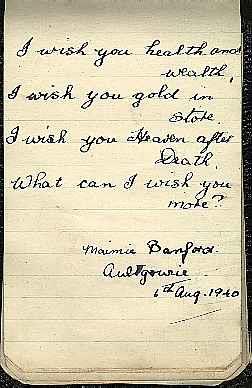 I wish you health and
wealth,
I wish you gold in
store
I wish you Heaven after
Death,
What can I wish you
more?
Maimie Banford.
Aultgowrie
6th Aug. 1940